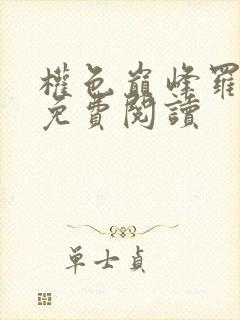 權色巔峰羅
免費閱讀
單士貞